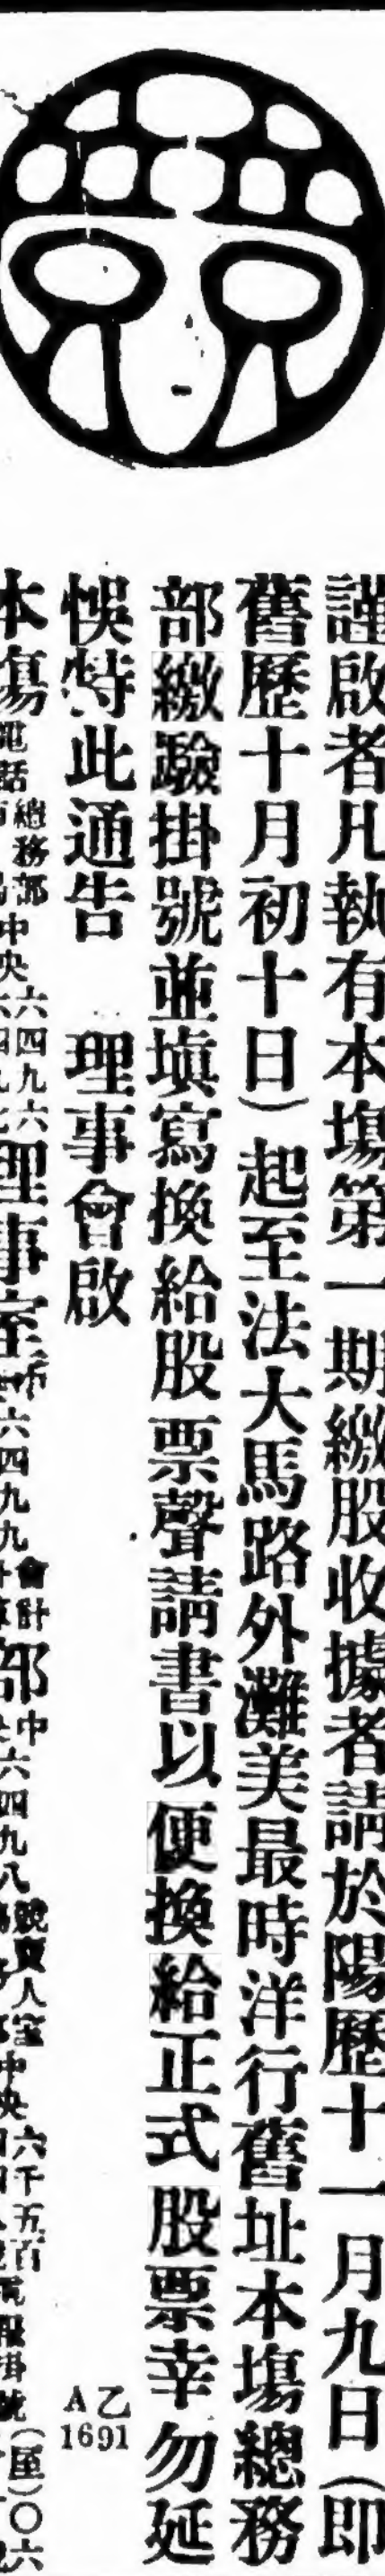 謹啟者凡執有本塲第一期繳股收據者請於陽歷十一月九日(即
舊歷十月初十日)起至法大馬路外灘美最時洋行舊址本塲總務
部繳驗掛號並塡寫換給股票聲請書以便換給正式股票幸勿延
悞特此通告 理事會啟
乙
A1691
本塲電話總務部中央六四九六理事室六四九九會計部中六四九八競買人室中央六千五百掛號(厘)〇六